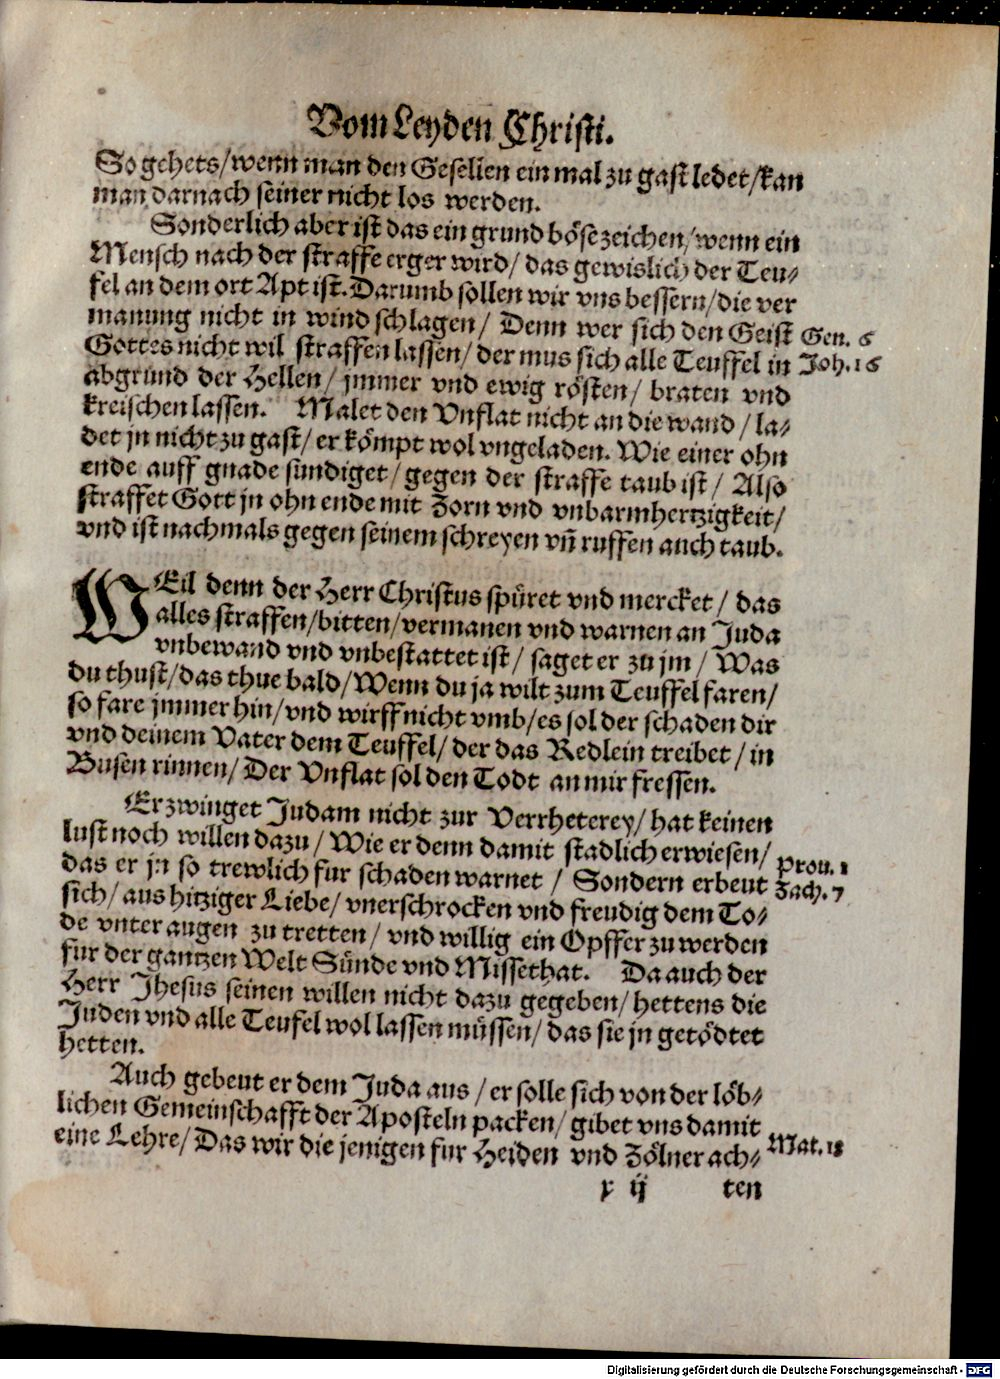 Vom Leyden Christi.
So gehets/wenn man den Gesellen ein mal zu gast ledet/kan
man darnach seiner nicht los werden.
Sonderlich aber ist das ein grund böse zeichen/wenn ein
Mensch nach der straffe erger wird/ das gewislich der Teu⸗
fel an dem ort Apt ist. Darumb sollen wir vns bessern/die ver
manung nicht in wind schlagen/ Denn wer sich den Geist Gen. 6
Gottes nicht wil straffen lassen/ der mus sich alle Teuffel in Joh. 16
abgrund der Hellen/ jmmer vnd ewig rösten/ braten vnd
kreischen lassen. Malet den Vnflat nicht an die wand/ la⸗
det jn nicht zu gast/ er kömpt wol vngeladen. Wie einer ohn
ende auff gnade sündiget/ gegen der straffe taub ist/ Also
straffet Gott jn ohn ende mit Zorn vnd vnbarmhertzigkeit/
vnd ist nachmals gegen seinem schreyen vñ ruffen auch taub.
WEil denn der Herr Christus spüret vnd mercket/ das
alles straffen/bitten/vermanen vnd warnen an Juda
vnbewand vnd vnbestattet ist/ saget er zu jm/ Was
du thust/das thue bald/Wenn du ja wilt zum Teuffel faren/
so fare jmmer hin/vnd wirff nicht vmb/es sol der schaden dir
vnd deinem Vater dem Teuffel/ der das Redlein treibet/ in
Busen rinnen/ Der Vnflat sol den Todt an mir fressen.
Er zwinget Judam nicht zur Verrheterey/ hat keinen
lust noch willen dazu/ Wie er denn damit stadlich erwiesen/
das er jn so trewlich fur schaden warnet/ Sondern erbeut Prou. 1
sich/ aus hitziger Liebe/ vnerschrocken vnd freudig dem To⸗ Zach. 7
de vnter augen zu tretten/ vnd willig ein Opffer zu werden
fur der gantzen Welt Sünde vnd Missethat. Da auch der
Herr Jhesus seinen willen nicht dazu gegeben/ hettens die
Juden vnd alle Teufel wol lassen müssen/ das sie jn getödtet
hetten.
Auch gebeut er dem Juda aus/ er solle sich von der löb⸗
lichen Gemeinschafft der Aposteln packen/ gibet vns damit
eine Lehre/ Das wir die jenigen fur Heiden vnd Zölner ach⸗ Mat. 18
x ij ten
Digitalisierung gefördert durch die Deutsche Forschungsgemeinschaft - DFG